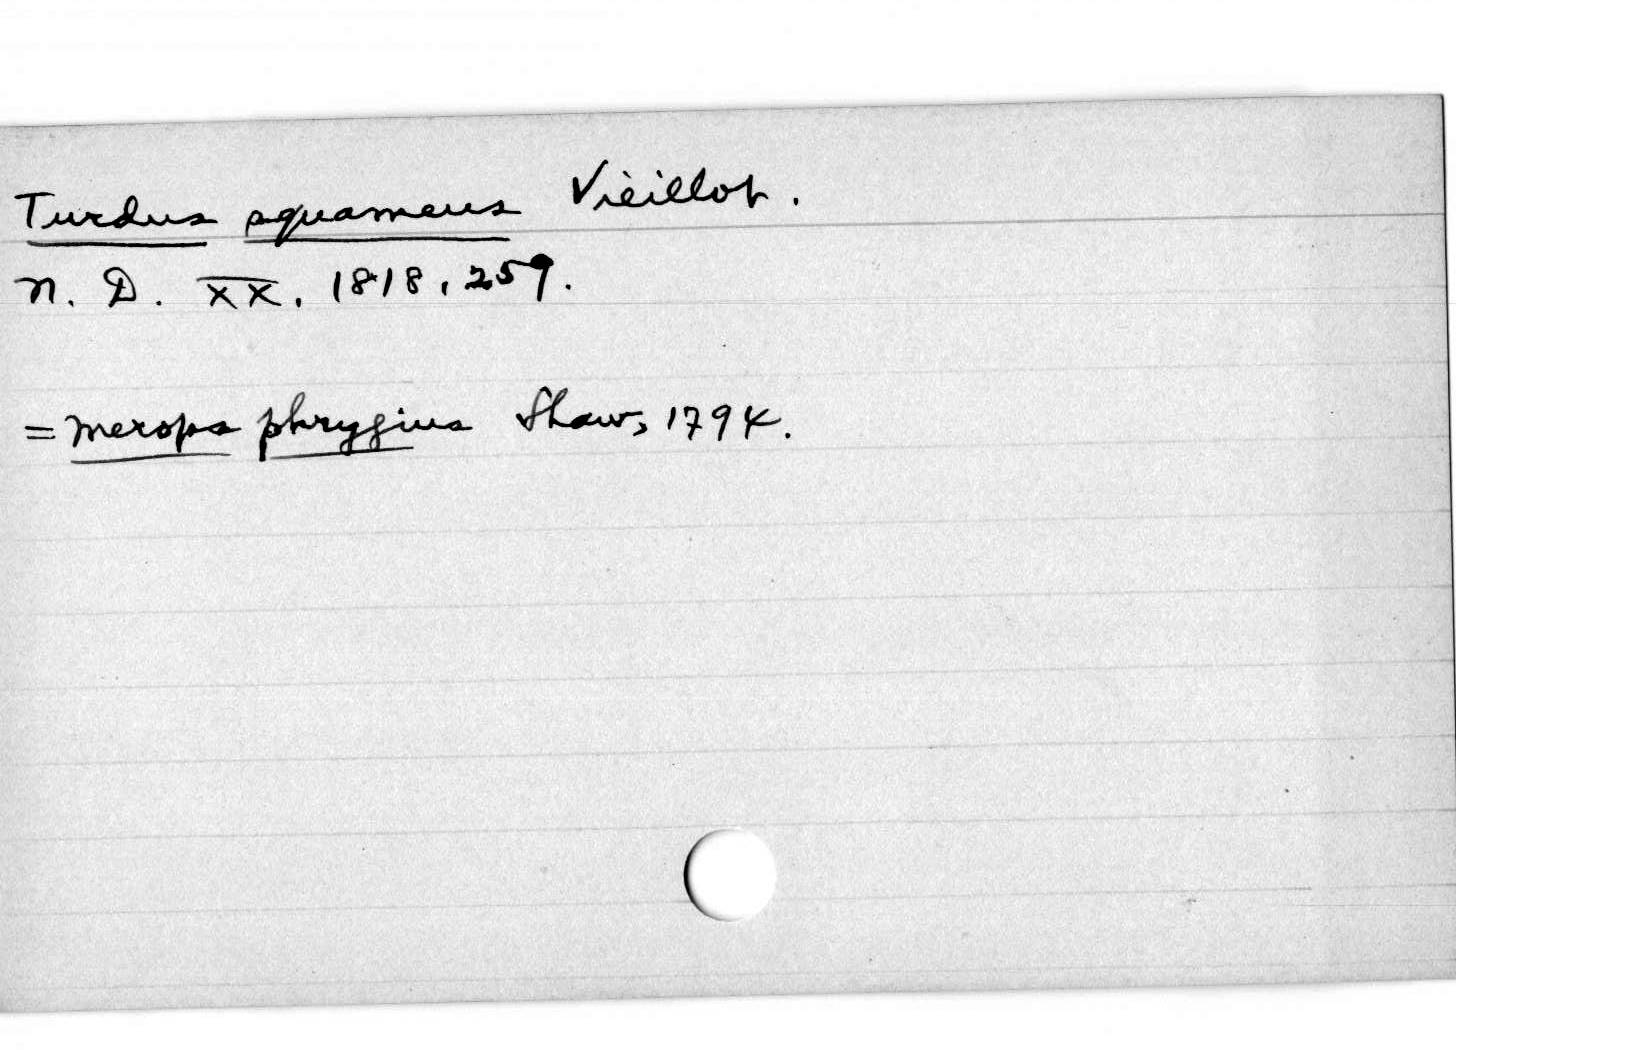 Turdus squameus Vieillot.
N. D. XX, 1818, 259.
= Merops phrygius Shaw, 1794.